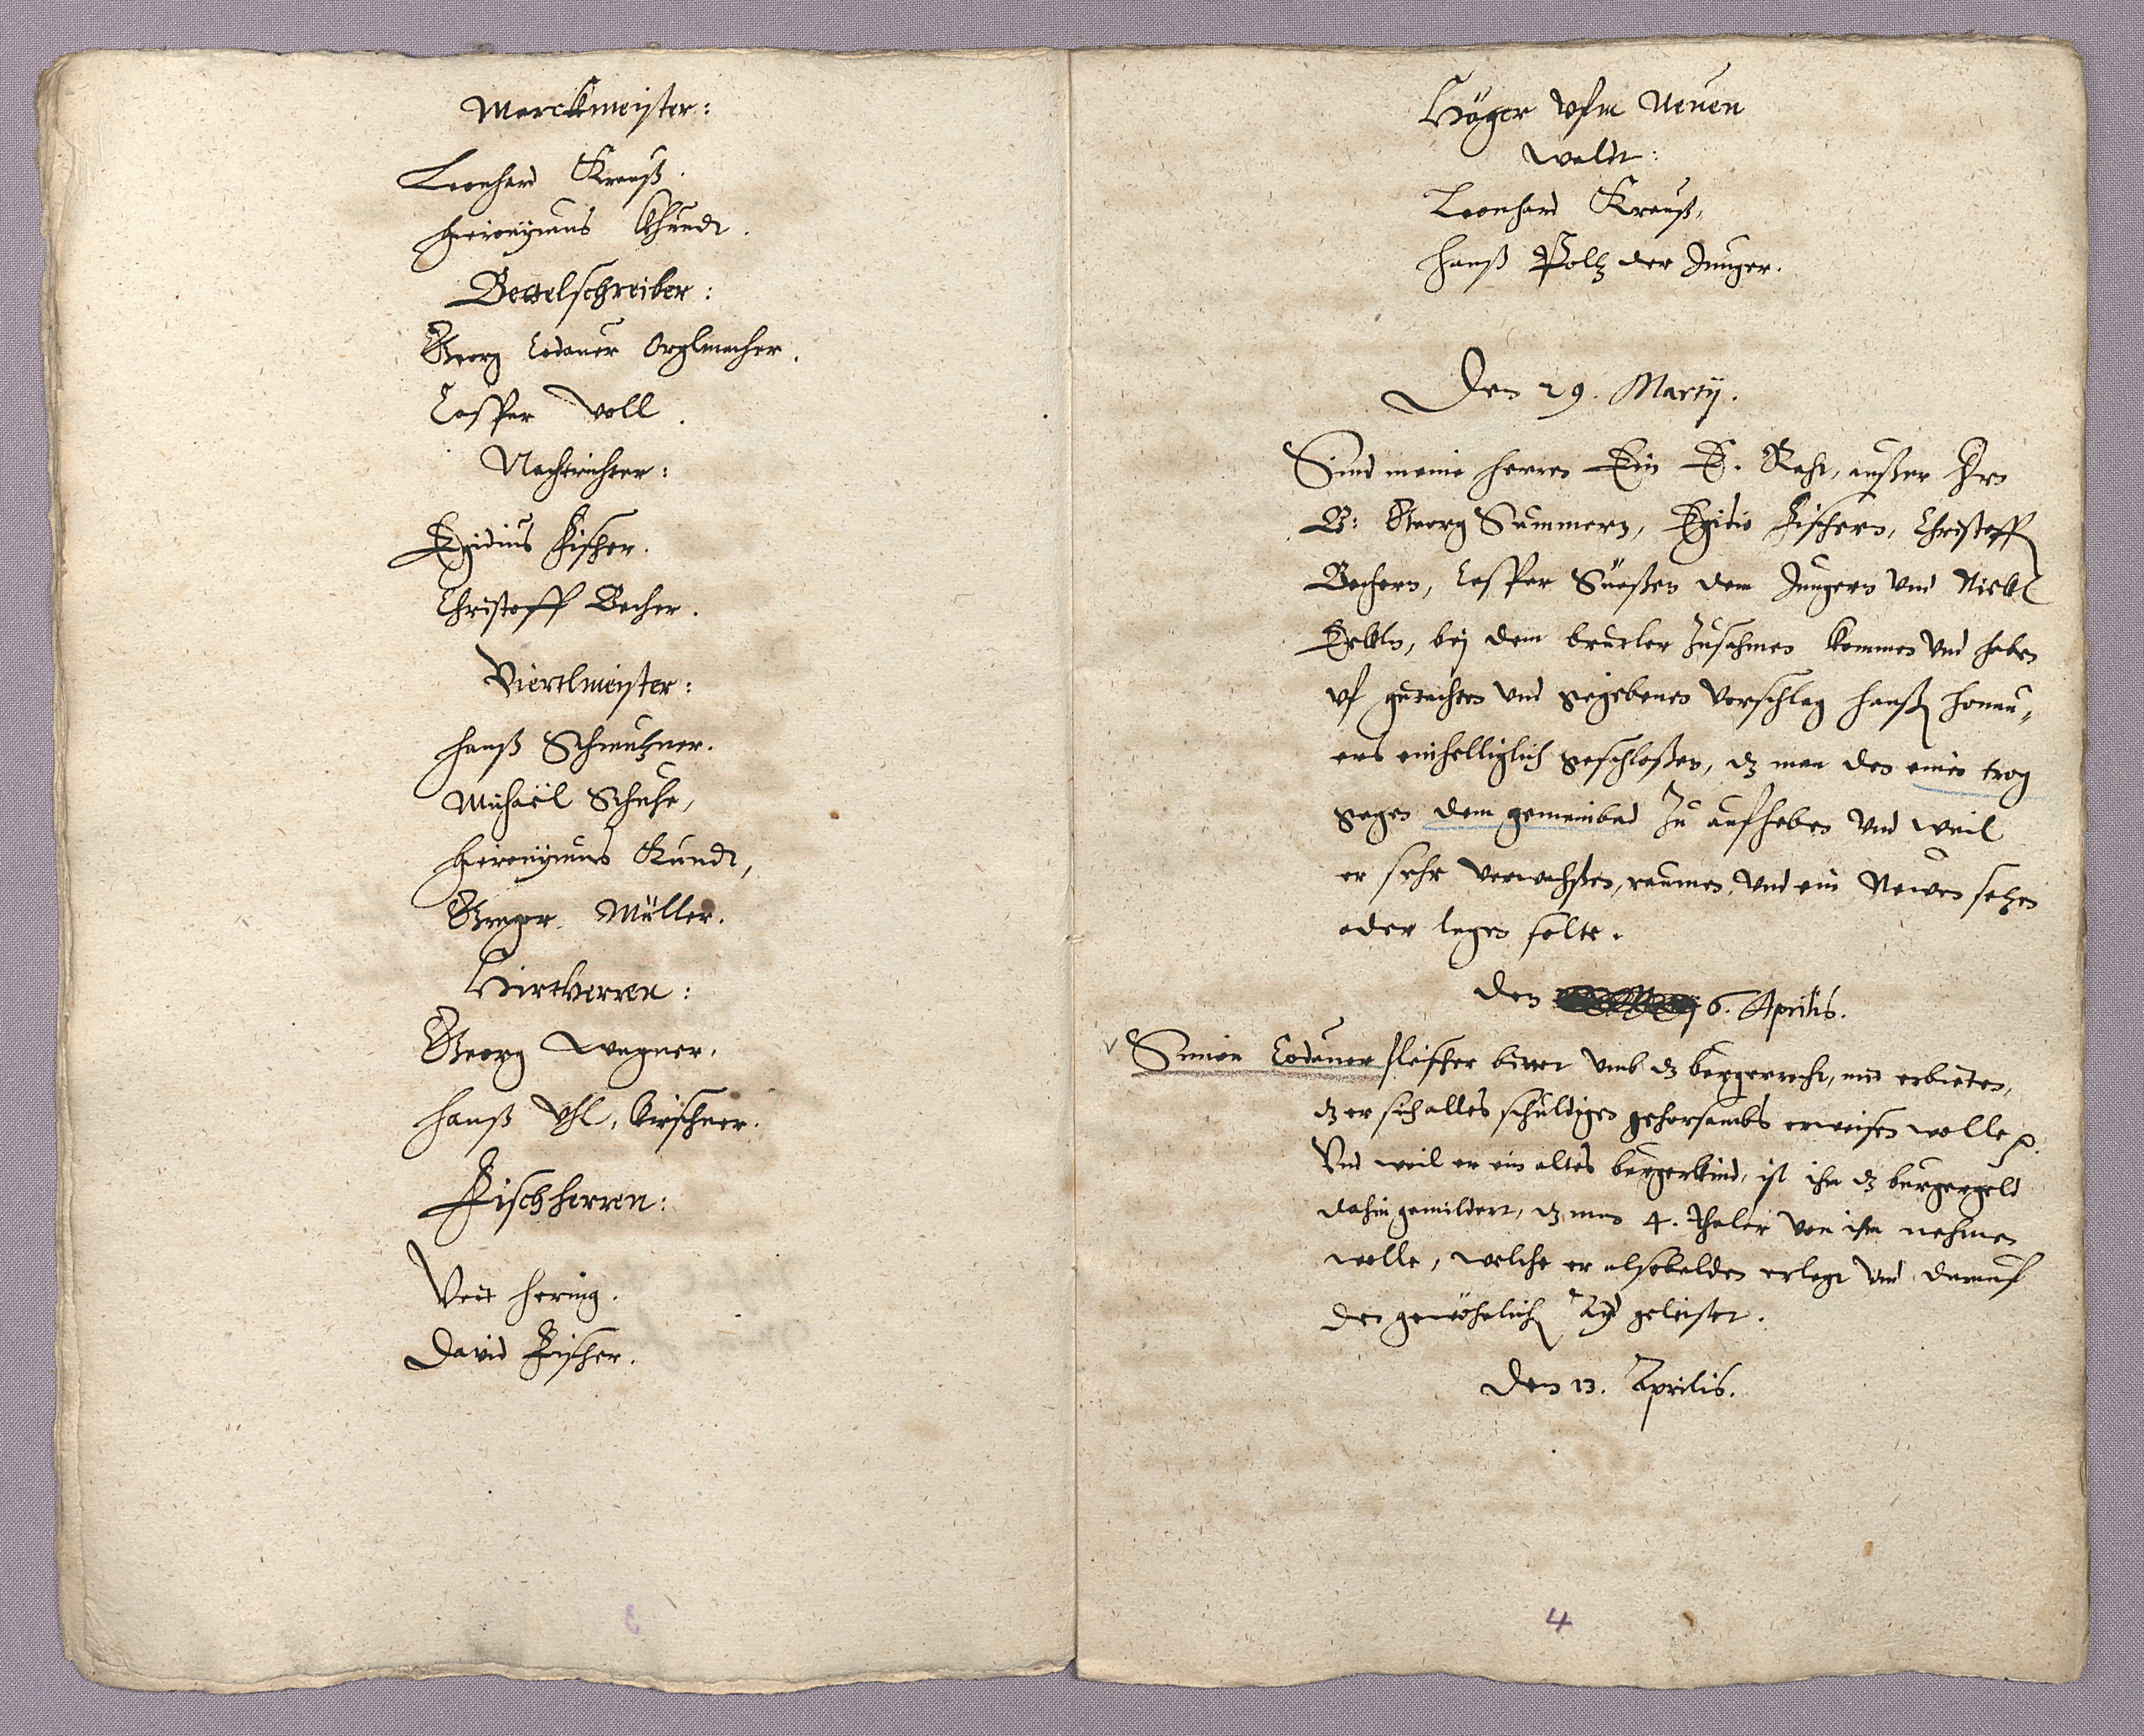 Marckmeister:
Leonhard Krauß.
Hieronÿmus Khundt.
Bettelschreiber:
Georg Lodauer Orglmacher.
Casper Voll.
Nachtrichter:
Egidius Fischer.
Christoff Becher.
Viertlmeister:
Hanß Schmutzner.
Michaël Schuhe,
Hieronÿmus Kundt,
Müller.
Hirtherren:
Georg Wagner,
Hanß Uhl, Kirschner.
Fischherren:
Veit Hering.
David Fischer.
3
Häger Vfm Neuen
Waldt:
Leonhard Krauß,
Hanß Poltz der Junger.
Den 29. Martij.
Sind meine Herren Ein E. Raht, außer Hrn
B: Georg Summern, Egidio Fischern, Christoff
Bechern, Casper Süeßen dem Jungern Vnd Nickl
bej dem Zusahmen kommen Vnd haben
Vf gutachten Vnd gegebenen Vorschlag Hanß Honau,,
ers einhelliglich geschloßen, dz man den einen trog
gegen dem gemeinbad Zu aufheben Vnd weil
er sehr verwachßen, raumen, Vnd ein Newen setzen
oder legen solte.
Den 6. Aprilis.
Simon Lodauer fleischer bittet Vmb dz burgerrecht, mit erbieten,
dz er sich alles schuldigen gehorsambs erweisen wolle
Vnd weil er ein altes burgerkind, ist ihm dz burgergeld
dahin gemildert, dz man 4. Thaler von ihm nehmen
wolle, welche er alsobalden erlegt Vnd darauf
den gewöhnlich Ayd geleistet.
Den 13. Aprilis.
4